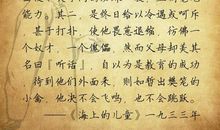 能力？其二，是终日给以冷遇或呵斥
甚于打扑，使他畏葸退缩，仿佛一
个奴才，一个傀儡，然而父母却美其
名曰「听话」，自以为是教育的成功
待到他们外面来，则如暂出樊笼的
小禽，他决不会飞鸣，也不会跳跃。
——《海上的儿童》一九三三年